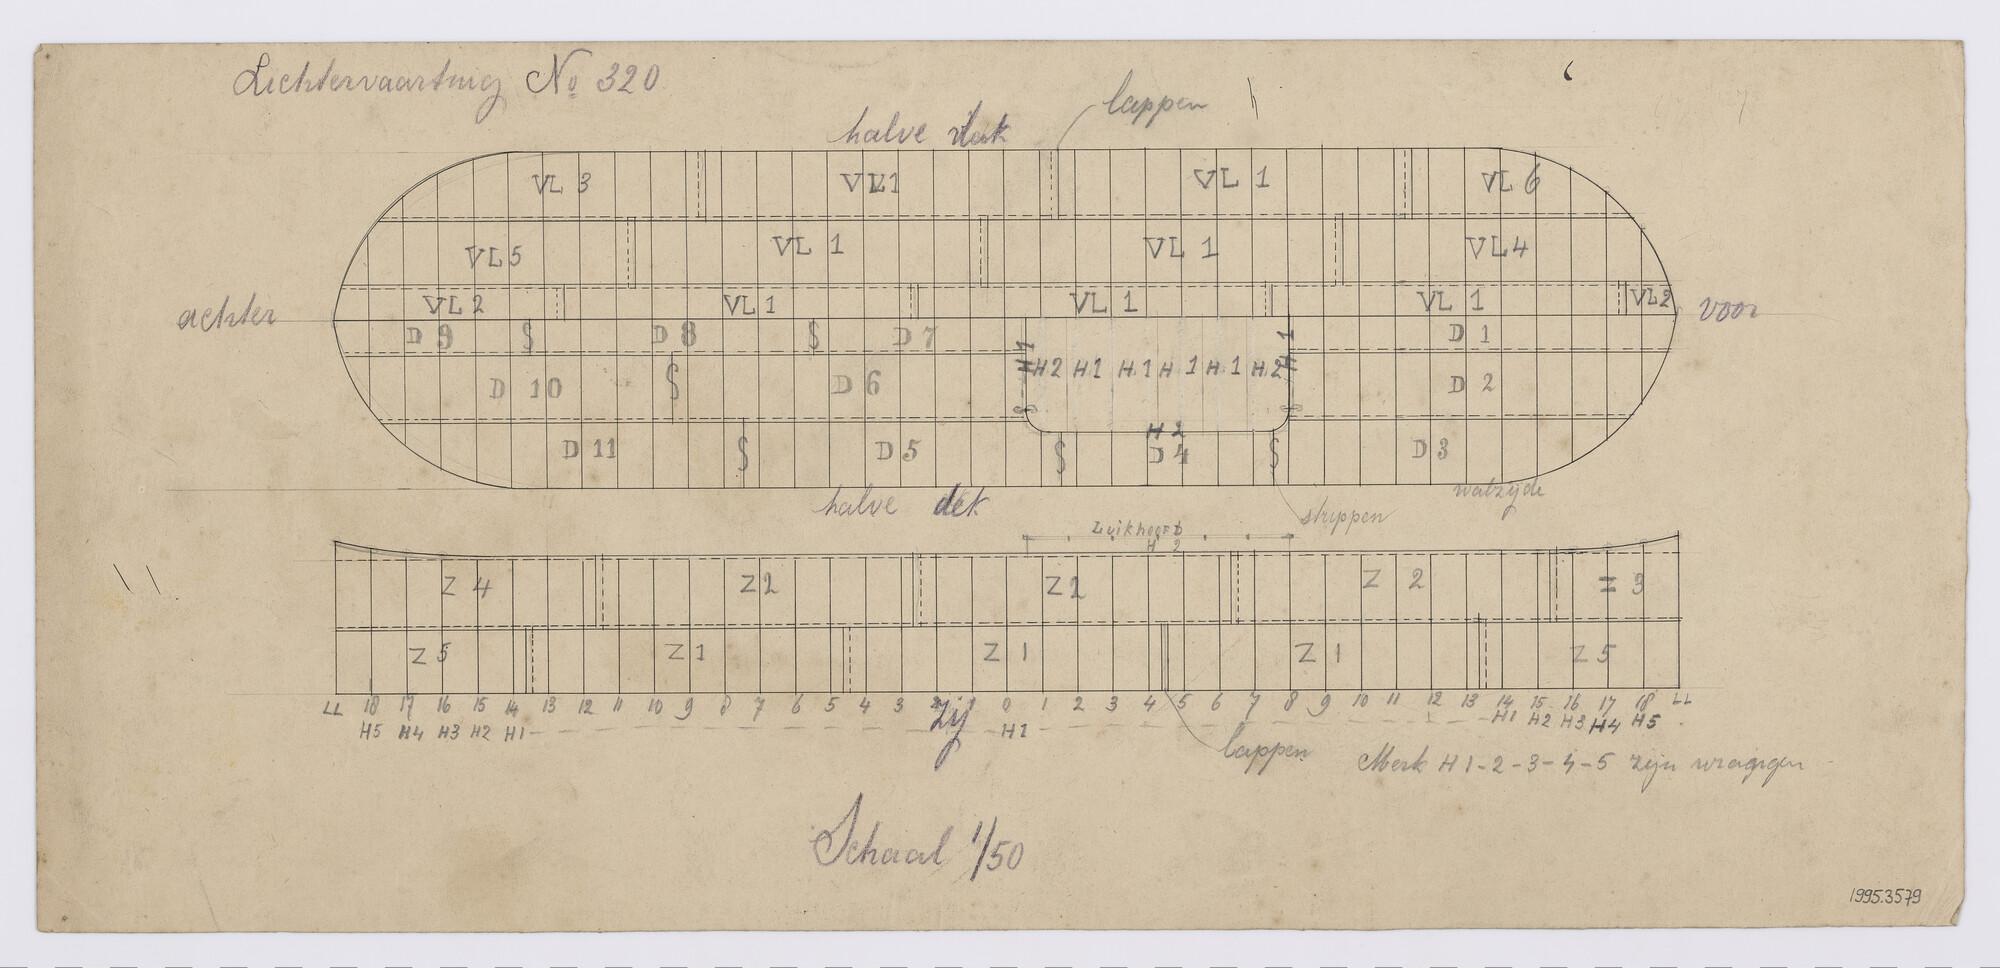 Lichtervaartuig No 320
lappen
halve vlak
VL 3 VL1 VL 1 VL 6
VL5 VL 1 VL 1 VL4
achter VL 2 VL 1 VL 1 VL 1 VL2 voor
D 9 D 8 D 7 H1 H1 D 1
H2 H1 H1 H1 H1 H2
D 10 D 6 D 2
H 2
D 11 D 5 D 4 D 3
halve dek walzijde
strippen
Luikhoofd
H 2
Z 4 Z2 Z2 Z 2 Z 3
Z 5 Z1 Z 1 Z 1 Z 5
LL 18 17 16 15 14 13 12 11 10 9 8 7 6 5 4 3 2 1 0 1 2 3 4 5 6 7 8 9 10 11 12 13 14 15 16 17 18 LL
H5 H4 H3 H2 H1 zij H1 H1 H2 H3 H4 H5
lappen
Merk H 1-2-3-4-5 zijn wrangen
Schaal 1/50
1995.3579